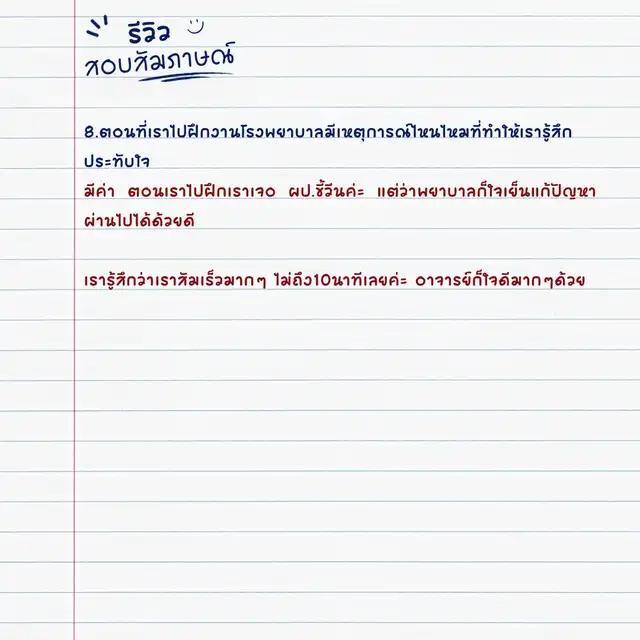 รีวิว
สอบสัมภาษณ์
8.ตอนที่เราไปฝึกงานโรงพยาบาลมีเหตุการณ์ไหนไหมที่ทำให้เรารู้สึก
ประทับใจ
มีค่า ตอนเราไปฝึกเราเจอ ผป.ชี้วีนค่ะ แต่ว่าพยาบาลก็ใจเย็นแก้ปัญหา
ผ่านไปได้ด้วยดี
เรารู้สึกว่าเราสัมเร็วมากๆ ไม่ถึง10นาทีเลยค่ะ อาจารย์ก็ใจดีมากๆด้วย